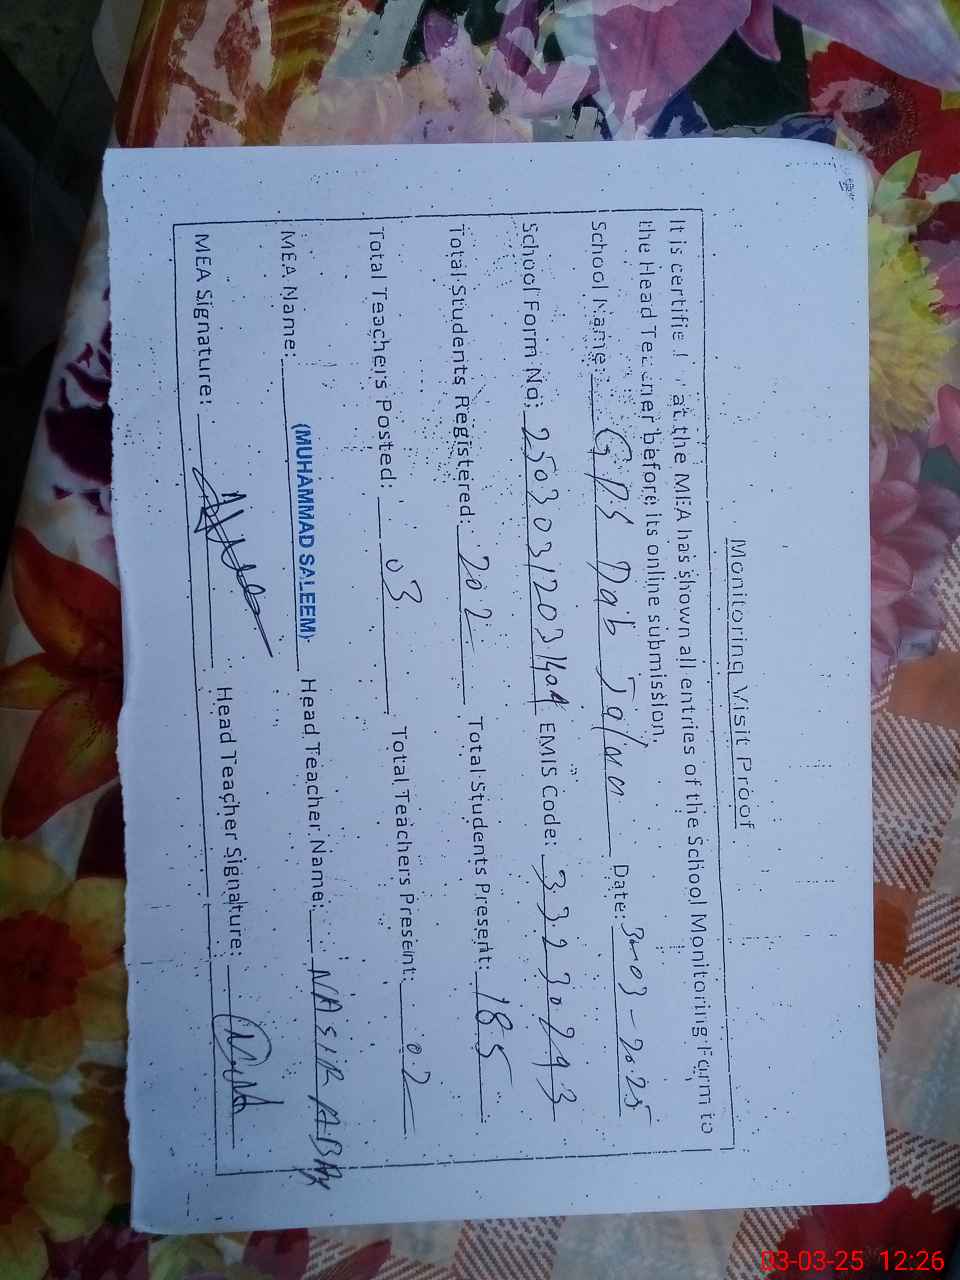 Monitoring Visit Proof
It is certified at the MEA has shown all entries of the School Monitoring Form to
the Head Teacher before its online submission.
School Name: GPS Dab Date: 3-03-2025
School Form No: EMIS Code: 33230293
Total Students Registered: 202 Total Students Present: 185
Total Teachers Posted: 03 Total Teachers Present: 02
MEA Name: (MUHAMMAD SALEEM) Head Teacher Name: NASIR ABBAS
MEA Signature: Head Teacher Signature:
03-03-25 12:26